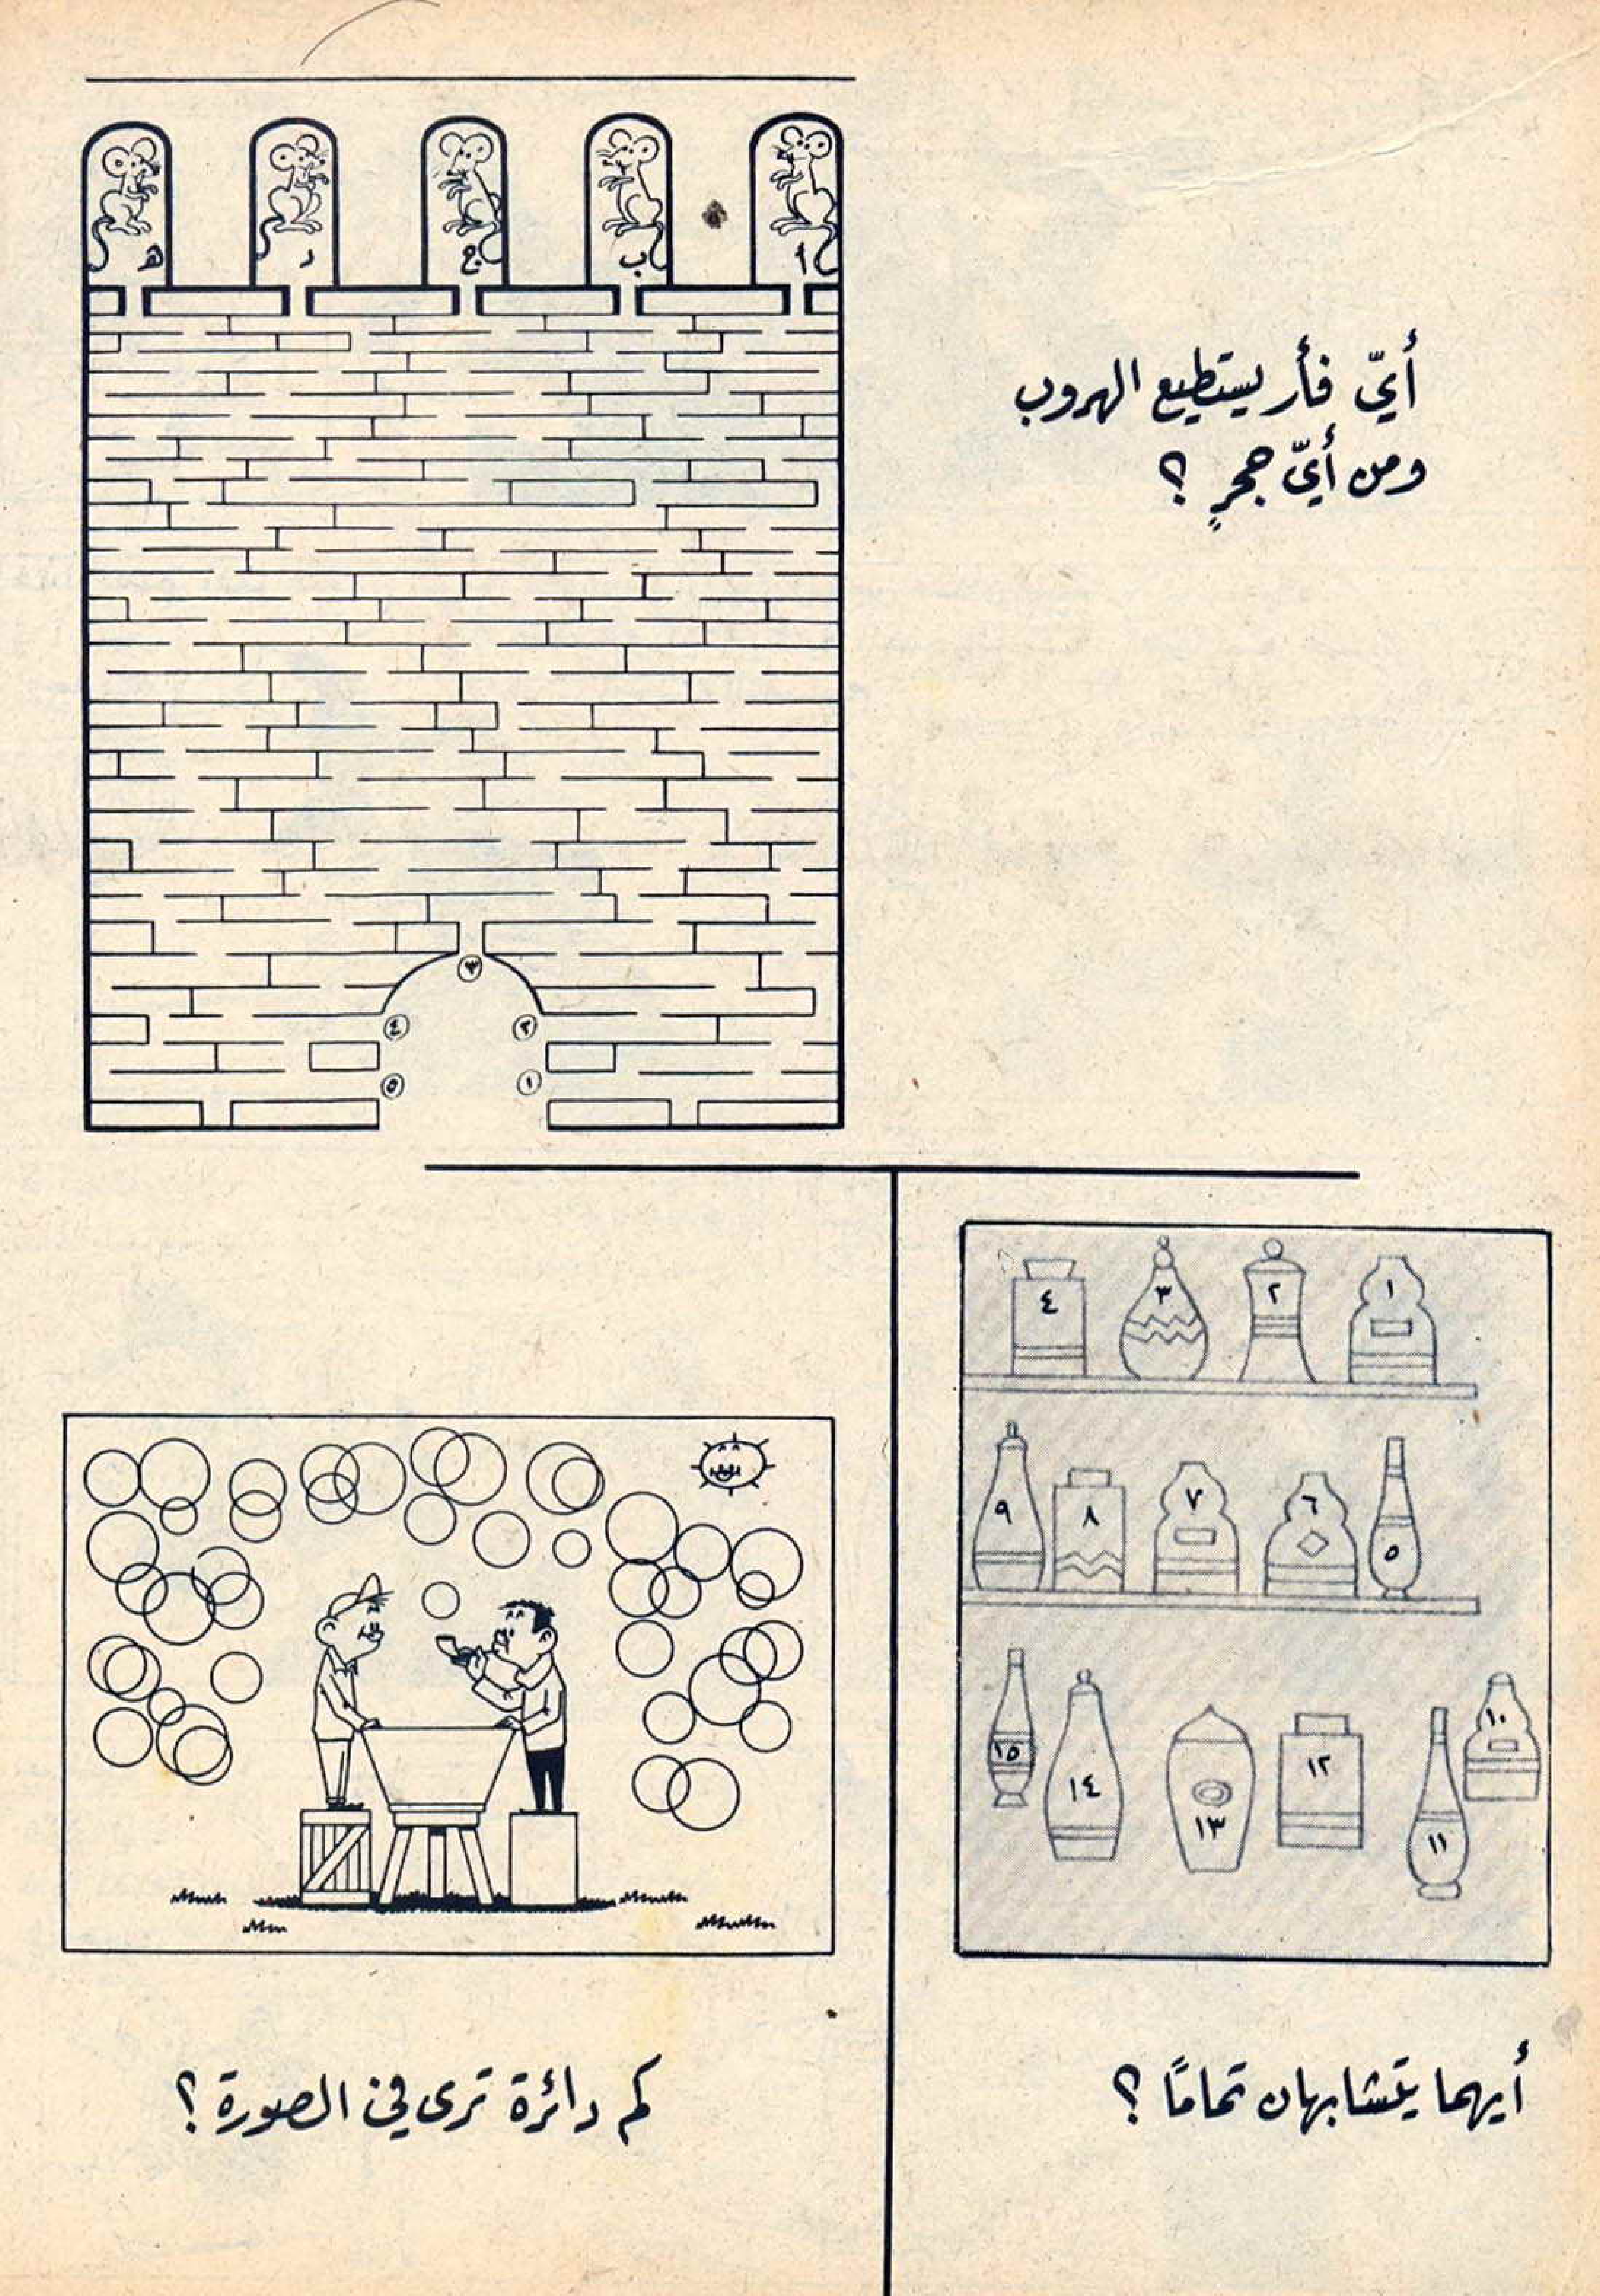 أ ب ج د ه
أيّ فأر يستطيع الهروب
ومن أيّ جحرٍ ؟
٣
٤ ٢
٥ ١
١ ٢ ٣ ٤
٥ ٦ ٧ ٨ ٩
١٠ ١١ ١٢ ١٣ ١٤ ١٥
أيهما يتشابهان تمامًا ؟
كم دائرة ترى في الصورة ؟